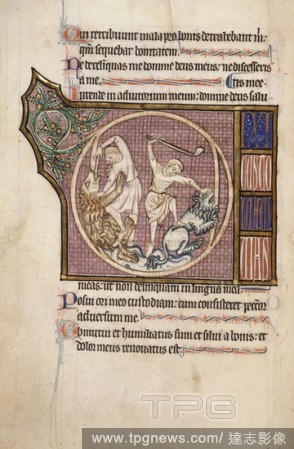 Qui retribuunt mala pro bonis detrahebant m̄.
qm̄ sequebar bonitatem.
Ne derelinquas me domine deus meus: ne discesseris
a me.
Intende in adiutorium meum: domine deus salu
meas: ut non delinquam in lingua mea.
Posui ori meo custodiam: cum consisteret peccōr
adversum me.
Obmutui et humiliatus sum et silui a bonis: et
dolor meus renovatus est.
TPG
www.tpgnews.com / 達志影像